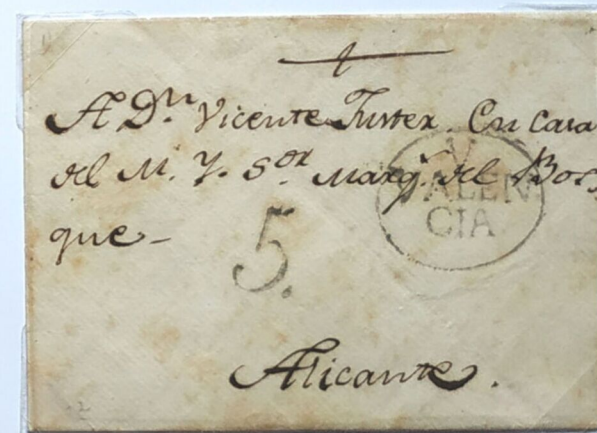 A Dn. Vicente Fuster. En casa
del M. Y. Sor. Marq. del Bos,
que -
V.
VALEN
CIA
5.
Alicante.